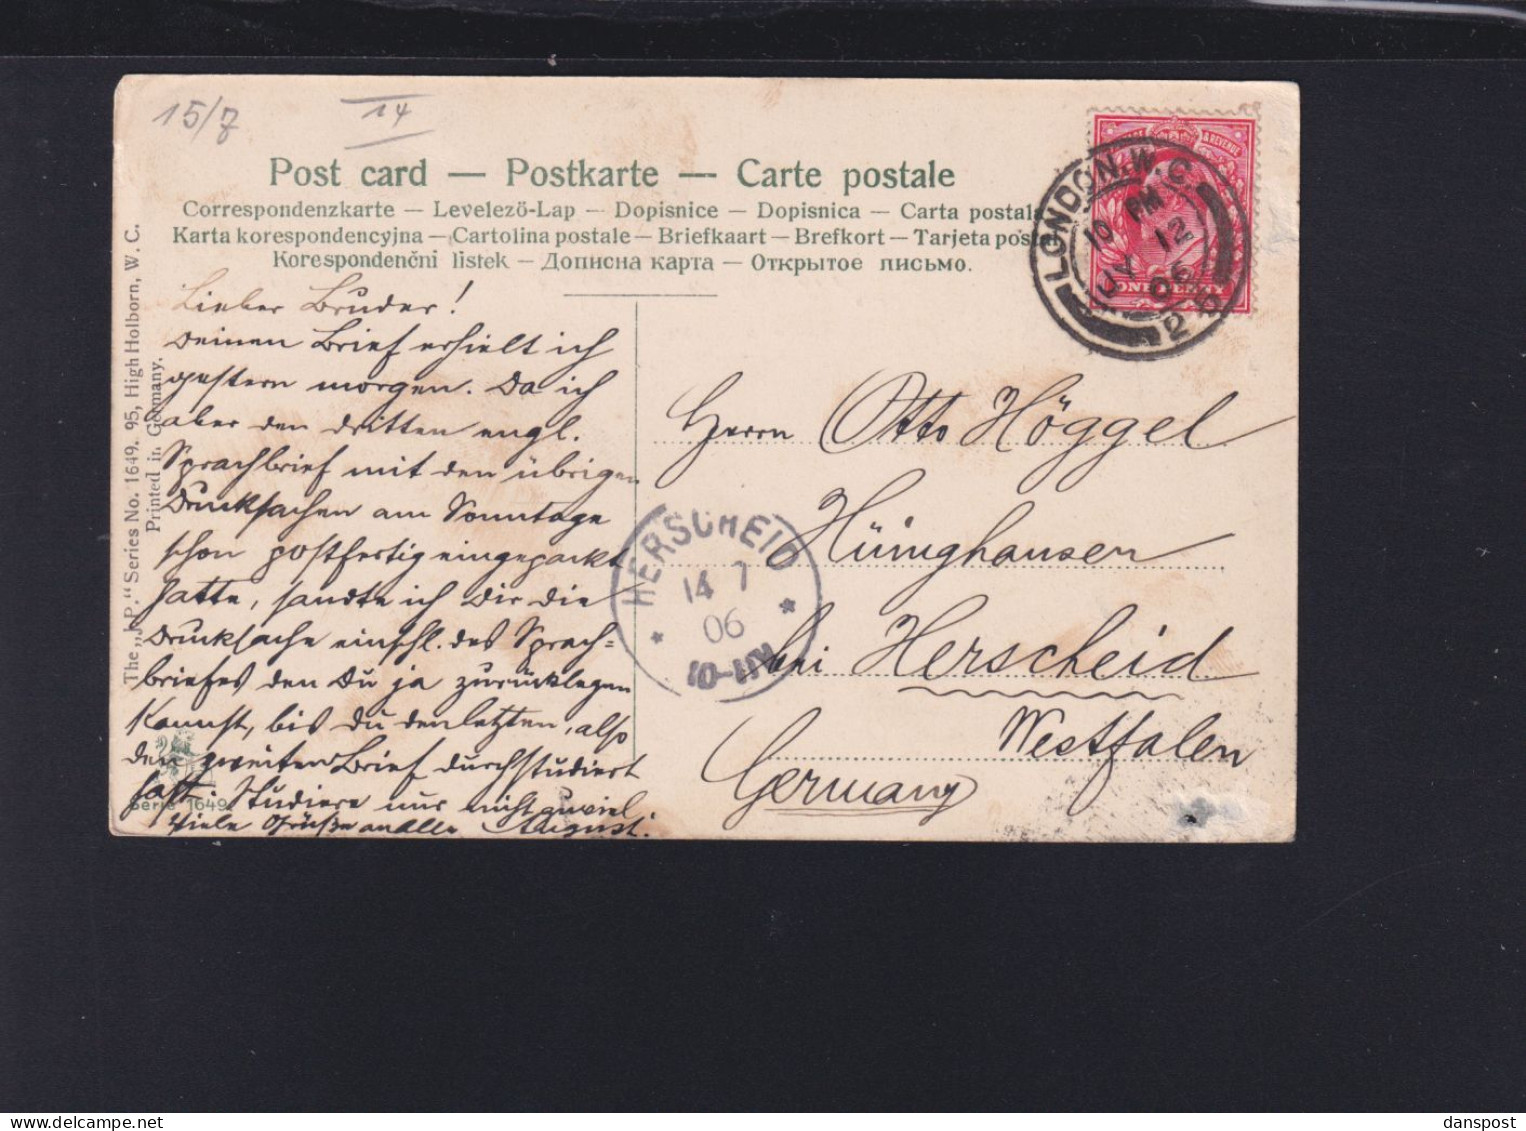 15/7
14
Post card — Postkarte — Carte postale
Correspondenzkarte — Levelezö-Lap — Dopisnice — Dopisnica — Carta postala
Karta korespondencyjna — Cartolina postale — Briefkaart — Brefkort — Tarjeta posta
Korespondenčni listek — Дописна карта — Открытое письмо.
LONDON.W.C
10 PM
JY 12
06
25
ONE PENNY
& REVENUE
The „J.P." Series No. 1649. 95, High Holborn, W. C.
Printed in Germany.
Lieber Bruder!
Deinen Brief erhielt ich
gestern morgen. Da ich
aber den dritten engl.
Sprachbrief mit den übrigen
Drucksachen am Sonntage
schon postfertig eingepackt
hatte, sandte ich Dir die
Drucksache einschl. des Sprach=
briefes den Du ja zurücklegen
kannst, bis du den letzten, also
den zweiten Brief durchstudiert
hast. Studiere nur nicht zuviel
Viele Grüße an Alle August.
Serie 1649
HERSCHEID
14 7
06
10-11V
Herrn Otto Höggel
Hüinghausen
bei Herscheid
Westfalen
Germany
danspost